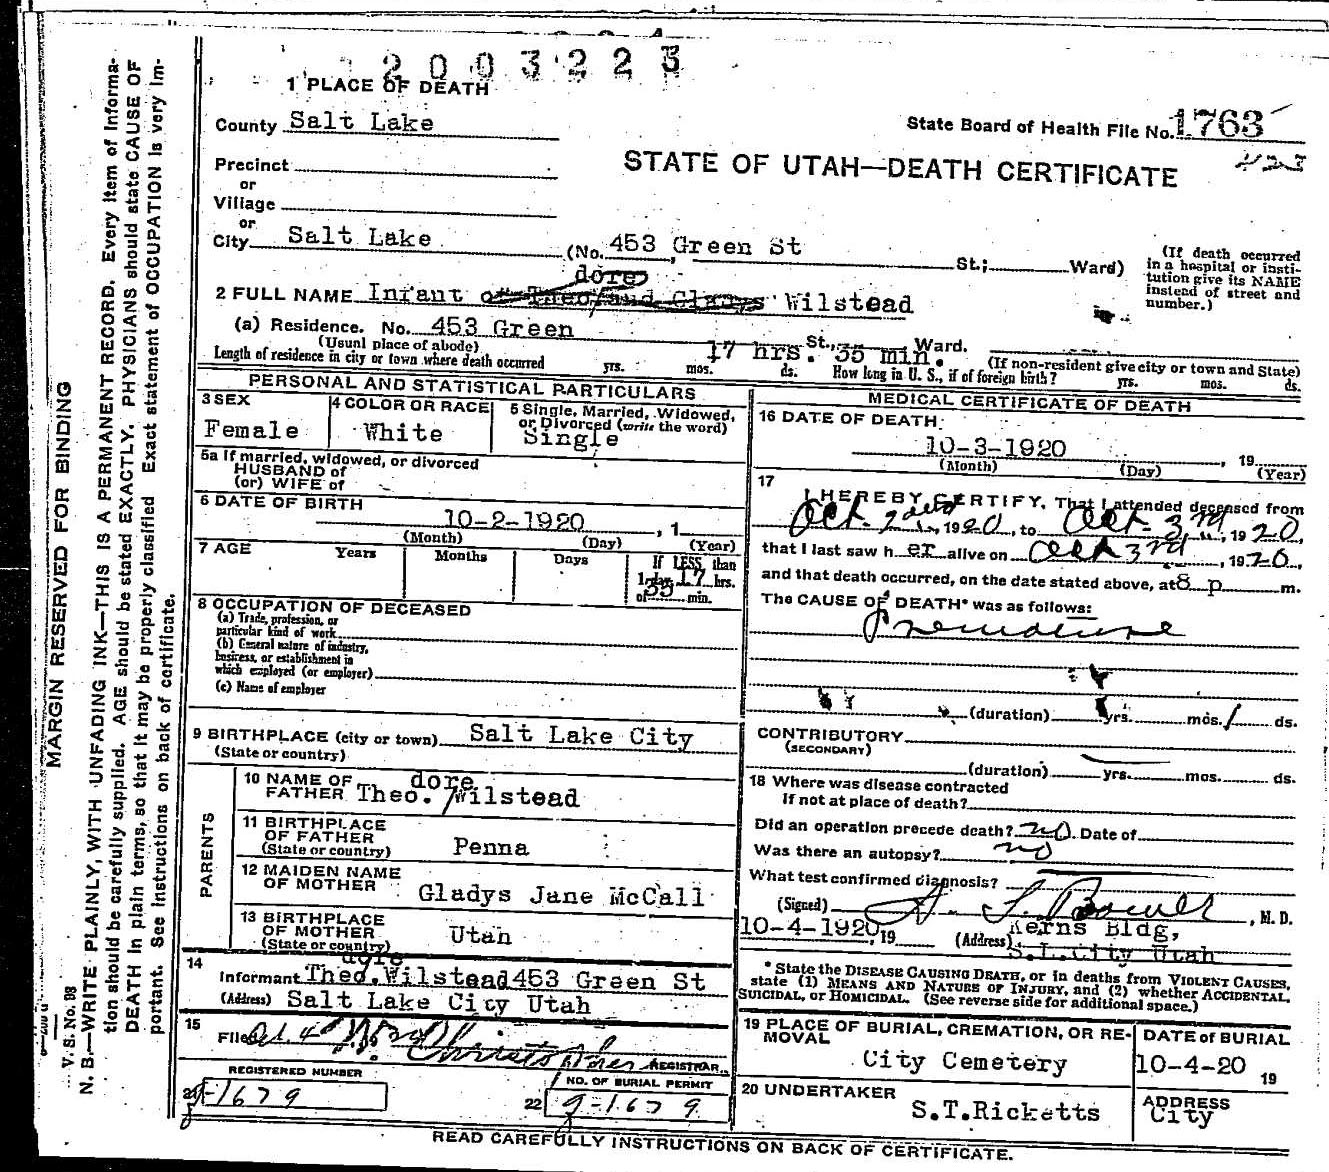 2003223
1 PLACE OF DEATH
County Salt Lake
State Board of Health File No. 1763
Precinct
or
Village
or
STATE OF UTAH—DEATH CERTIFICATE
City Salt Lake (No. 453 Green St St.; Ward)
(If death occurred in a hospital or insti-
tution give its NAME
instead of street and
number.)
dore
2 FULL NAME Infant of Theo/and Gladys Wilstead
(a) Residence. No. 453 Green St., Ward.
(Usual place of abode) (If non-resident give city or town and State)
17 hrs. 35 min.
Length of residence in city or town where death occurred yrs. mos. ds. How long in U. S., if of foreign birth? yrs. mos. ds.
PERSONAL AND STATISTICAL PARTICULARS
3 SEX
Female
4 COLOR OR RACE
White
5 Single, Married, Widowed,
or Divorced (write the word)
Single
5a If married, widowed, or divorced
HUSBAND of
(or) WIFE of
6 DATE OF BIRTH
10-2-1920, 1
(Month) (Day) (Year)
7 AGE Years Months Days If LESS than
1 day 17 hrs.
or 35 min.
8 OCCUPATION OF DECEASED
(a) Trade, profession, or
particular kind of work
(b) General nature of industry,
business, or establishment in
which employed (or employer)
(c) Name of employer
9 BIRTHPLACE (city or town) Salt Lake City
(State or country)
PARENTS
10 NAME OF
FATHER Theo. dore /Wilstead
11 BIRTHPLACE
OF FATHER
(State or country) Penna
12 MAIDEN NAME
OF MOTHER Gladys Jane McCall
13 BIRTHPLACE
OF MOTHER
(State or country) Utah
14 dore
Informant Theo. Wilstead 453 Green St
(Address) Salt Lake City Utah
15
Filed Oct. 4
REGISTRAR
REGISTERED NUMBER
21 g-1679
NO. OF BURIAL PERMIT
22 g-1679
MEDICAL CERTIFICATE OF DEATH
16 DATE OF DEATH
10-3-1920, 19
(Month) (Day) (Year)
17 I HEREBY CERTIFY, That I attended deceased from
Oct. 2nd, 1920, to Oct. 3rd, 1920,
that I last saw h er alive on Oct 3rd, 1920,
and that death occurred, on the date stated above, at 8 p m.
The CAUSE OF DEATH* was as follows:
Premature
(duration) yrs. mos. 1 ds.
CONTRIBUTORY
(SECONDARY)
(duration) yrs. mos. ds.
18 Where was disease contracted
If not at place of death?
Did an operation precede death? no. Date of
Was there an autopsy? no
What test confirmed diagnosis?
(Signed) , M. D.
10-4-1920, 19 (Address) Kerns Bldg,
S.L.City Utah
* State the DISEASE CAUSING DEATH, or in deaths from VIOLENT CAUSES,
state (1) MEANS AND NATURE OF INJURY, and (2) whether ACCIDENTAL,
SUICIDAL, or HOMICIDAL. (See reverse side for additional space.)
19 PLACE OF BURIAL, CREMATION, OR RE-
MOVAL
City Cemetery
DATE OF BURIAL
10-4-20 19
20 UNDERTAKER
S.T.Ricketts
ADDRESS
City
READ CAREFULLY INSTRUCTIONS ON BACK OF CERTIFICATE.
MARGIN RESERVED FOR BINDING
V. S. No. 98
N. B.—WRITE PLAINLY, WITH UNFADING INK—THIS IS A PERMANENT RECORD. Every item of Informa-
tion should be carefully supplied. AGE should be stated EXACTLY. PHYSICIANS should state CAUSE OF
DEATH in plain terms, so that it may be properly classified Exact statement of OCCUPATION is very im-
portant. See Instructions on back of certificate.